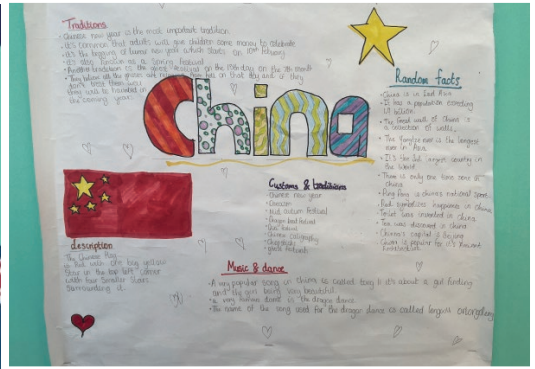 Traditions
Chinese new year is the most important tradition
It's common that adults will give children some money to celebrate
It's the of lunar new year which starts on
It's also as a spring festival
Another tradition is the festival on the 15th day on the 7th month
They believe all the on that day and if they
don't treat them well
they will be haunted in
the coming year.
China
Random facts
China is in East Asia
It has a population exceeding
1.4 billion.
The Great wall of China is
a of walls.
The Yangtze river is the longest
river in Asia
It's the 3rd largest country in
the world
There is only one time zone in
china
Ping Pong is china's national sport
Red symbolises happiness in china
Toilet was invented in china
Tea was discovered in china
China's capital is Beijing
is popular for it's
Customs & traditions
Chinese new year
Mid autumn festival
Dragon boat festival
festival
Chinese calligraphy
Chopsticks
description
The Chinese flag
is Red with one big yellow
Star in the top left corner
with four smaller stars
Surrounding it.
Music & dance
A very popular song in china is called it's about a girl finding
and the girl being very beautiful.
a very famous dance is the dragon dance
The name of the song used for the dragon dance is called